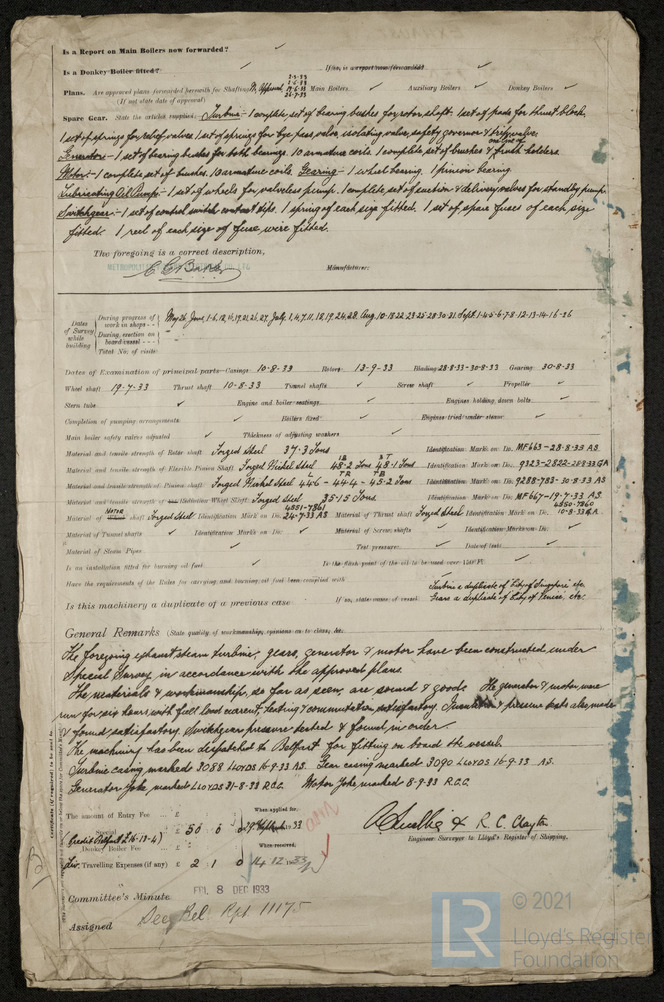 Is a Report on Main Boilers now forwarded? ✓
Is a Donkey Boiler fitted? ✓ If so, is a report now forwarded? ✓
Plans. Are approved plans forwarded herewith for Shafting Main Boilers ✓ Auxiliary Boilers ✓ Donkey Boilers ✓
(If not state date of approval)
Spare Gear. State the articles supplied:- Turbine - 1 complete set of bearing bushes for rotor shaft. 1 set of pads for thrust block.
1 set of springs for relief valves. 1 set of springs for bye pass valve, isolating valve, safety governor & trip valve.
Generator - 1 set of bearing bushes for both bearings. 10 armature coils. 1 complete set of bushes & brush holders.
Motor - 1 complete set of brushes. 10 armature coils. Gearing - 1 wheel bearing. 1 pinion bearing.
Lubricating Oil Pump - 1 set of wheels for valveless pump. 1 complete set of suction & delivery valves for standby pump.
Switchgear - 1 set of control switch contact tips. 1 spring of each size fitted. 1 set of spare fuses of each size
fitted. 1 reel of each size of fuse wire fitted.
The foregoing is a correct description,
Manufacturer.
Dates of Survey while building
During progress of work in shops - - May 26 June, 1-6, 12, 15, 19, 21, 26, 27, July, 3, 4, 7, 11, 18, 19, 24, 28, Aug. 10-18-22-23-25-28-30-31 Sept. 1-4-5-6-7-8-12-13-14-16-26
During erection on board vessel - - -
Total No. of visits
Dates of Examination of principal parts—Casings 10-8-33 Rotors 13-9-33 Blading 28-8-33-30-8-33 Gearing 30-8-33
Wheel shaft 19-7-33 Thrust shaft 10-8-33 Tunnel shafts ✓ Screw shaft ✓ Propeller ✓
Stern tube ✓ Engine and boiler seatings ✓ Engines holding down bolts ✓
Completion of pumping arrangements ✓ Boilers fixed ✓ Engines tried under steam ✓
Main boiler safety valves adjusted ✓ Thickness of adjusting washers ✓
Material and tensile strength of Rotor shaft Forged Steel 37.3 Tons Identification Mark on Do. MF663-28-8-33 A.S
Material and tensile strength of Flexible Pinion Shaft Forged Nickel Steel 48.2 Tons 48.1 Tons Identification Mark on Do. 9323-2822-28-8-33 GA
Material and tensile strength of Pinion shaft Forged Nickel Steel 44.6 - 44.4 - 45.2 Tons Identification Mark on Do. 9288-783-30-8-33 A.S
Material and tensile strength of Reduction Wheel Shaft Forged Steel 35.15 Tons. Identification Mark on Do. MF667-19-7-33 A.S
Material of MOTOR shaft Forged Steel Identification Mark on Do. 4551-7861 24-7-33 A.S Material of Thrust shaft Forged Steel Identification Mark on Do. 4550-7860 10-8-33 G.A
Material of Tunnel shafts ✓ Identification Marks on Do. ✓ Material of Screw shafts ✓ Identification Marks on Do. ✓
Material of Steam Pipes ✓ Test pressure ✓ Date of test ✓
Is an installation fitted for burning oil fuel ✓ Is the flash point of the oil to be used over 150°F. ✓
Have the requirements of the Rules for carrying and burning oil fuel been complied with
Is this machinery a duplicate of a previous case If so, state name of vessel Turbine a duplicate of City of Singapore etc.
Gears a duplicate of City of Venice, etc.
General Remarks (State quality of workmanship, opinions as to class, &c.
The foregoing exhaust steam turbine, gears, generator & motor have been constructed under
Special Survey in accordance with the approved plans.
The materials & workmanship, so far as seen, are sound & good. The generator & motor were
run for six hours with full load current, heating & commutation satisfactory. Insulation & pressure tests also made
& found satisfactory. Switchgear pressure tested & found in order.
The machinery has been despatched to Belfast for fitting on board the vessel.
Turbine casing marked 3088 LLOYDS 16-9-33 A.S. Gear casing marked 3090 LLOYDS 16-9-33 A.S.
Generator Yoke marked LLOYDS 31-8-33 R.C.C. Motor Yoke marked 8-9-33 R.C.C.
The amount of Entry Fee ... £ : :
(Credit Belfast £16-13-4) £ 50 : 0 : 0
Donkey Boiler Fee ... £ : :
Travelling Expenses (if any) £ 2 : 1 : 0
When applied for, 1933
When received, 14.12.1933
R. C. Clayton
Engineer Surveyor to Lloyd's Register of Shipping.
Committee's Minute FRI. 8 DEC 1933
Assigned See Bel. Rpt 11175
LR
© 2021
Lloyd's Register
Foundation